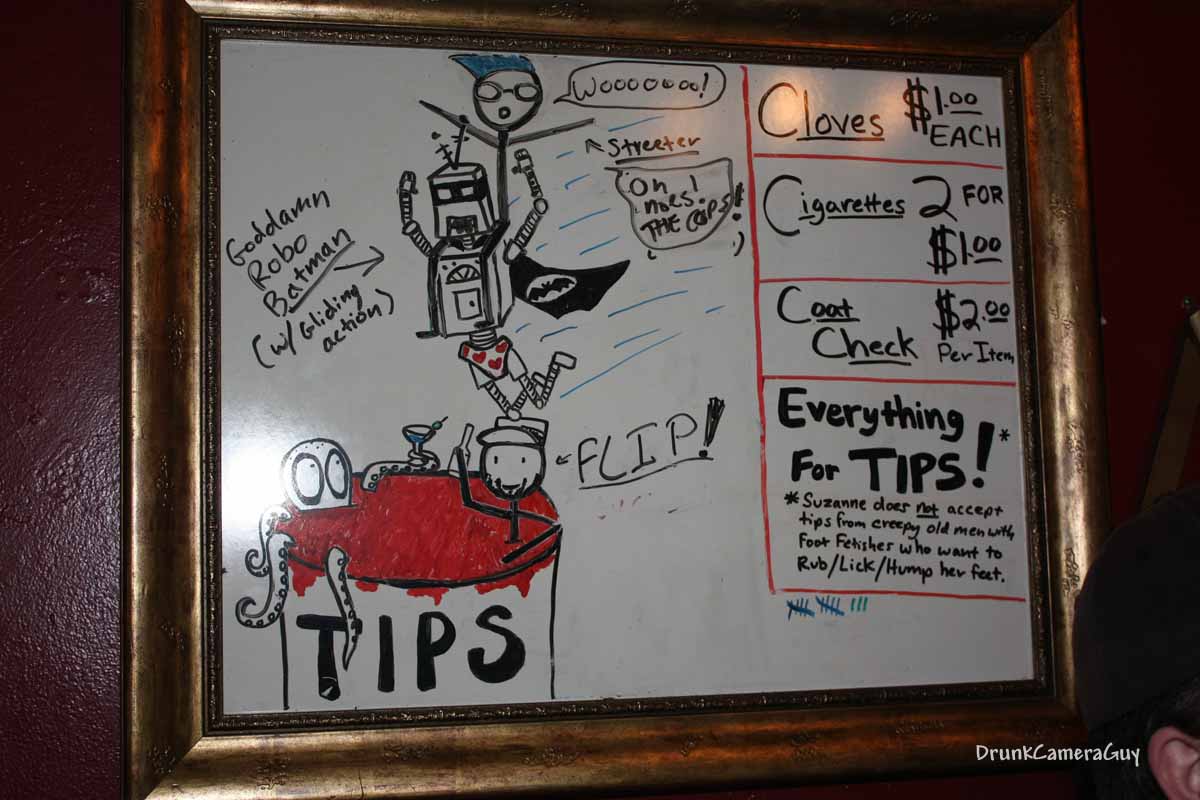 Woooooo!
Streeter
Oh
noes!
THE COPS!
Goddamn
Robo
Batman
(w/Gliding
action)
FLIP!
TIPS
Cloves $1.00
EACH
Cigarettes 2 FOR
$1.00
Coat $2.00
Check Per Item
Everything
For TIPS!*
* Suzanne does not accept
tips from creepy old men with
Foot Fetishes who want to
Rub/Lick/Hump her feet.
DrunkCameraGuy